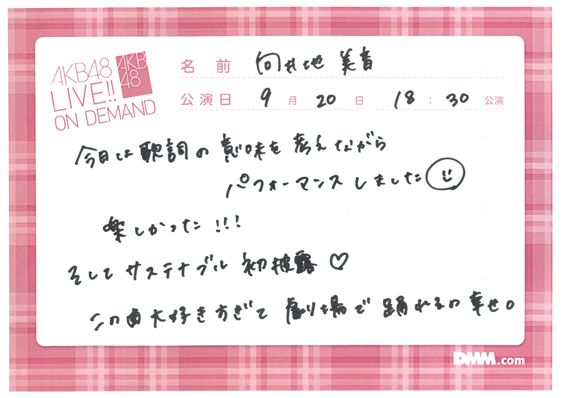 AKB48
LIVE!!
ON DEMAND
AKB
48
名 前 向井地 美音
公演日 9 月 20 日 18 : 30 公演
今日は歌詞の意味を考えながら
パフォーマンスしました
楽しかった!!!
そしてサステナブル初披露♡
この曲大好きすぎて劇場で踊れるの幸せ。
DMM.com